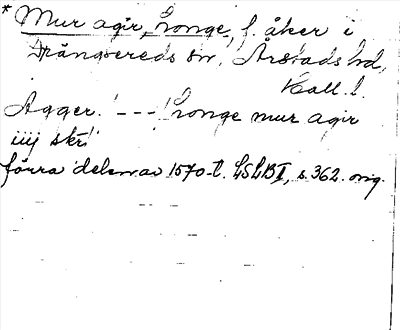 * Mur agir, Longe, f. åker i
Drängsereds sn, Årstads hd,
Hall. l.
Agger. ' - - - ' Longe mur agir
iiij skr̃
förra delen av 1570-t. LSLB I, s. 362. orig.